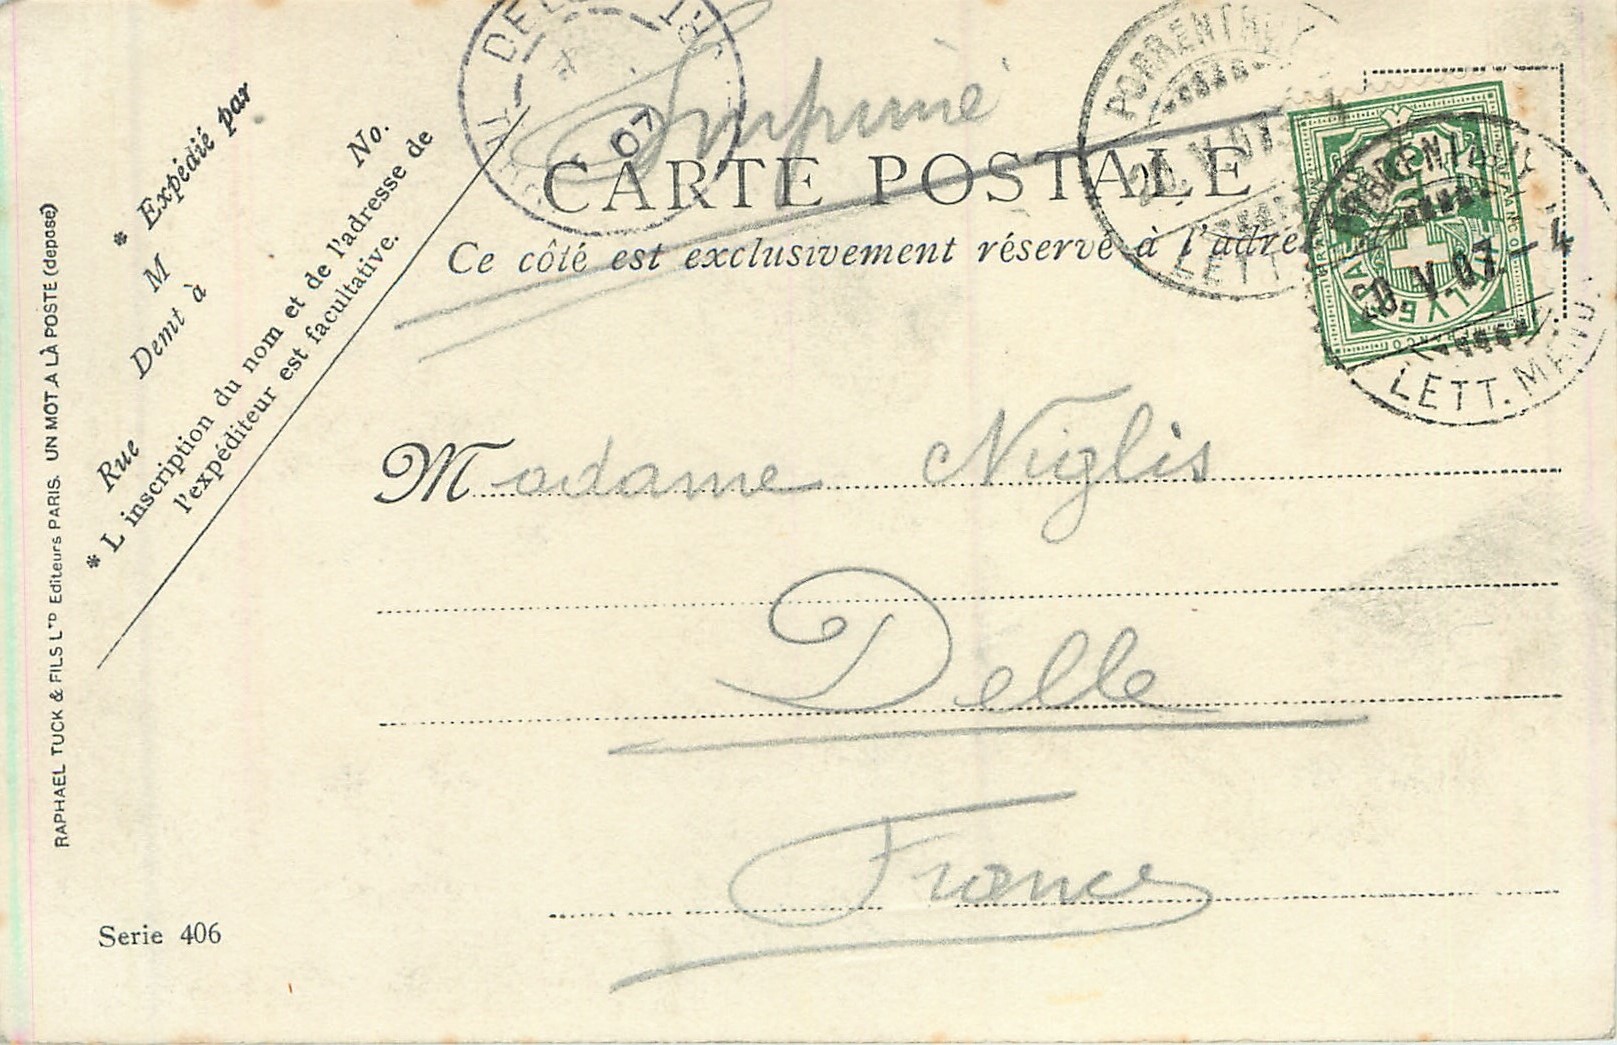 Imprimé
CARTE POSTALE
Ce côté est exclusivement réservé à l'adre
* Expédié par
M
Demt à
Rue
No.
* L inscription du nom et de l'adresse de
l'expéditeur est facultative.
RAPHAEL TUCK & FILS LTD Editeurs PARIS. UN MOT A LA POSTE (deposé)
Madame Niglis
Delle
France
Serie 406
PORRENTRUY
V.07
LETT.
PORRENTRUY
20.V.07.-4
LETT. MAND.
07